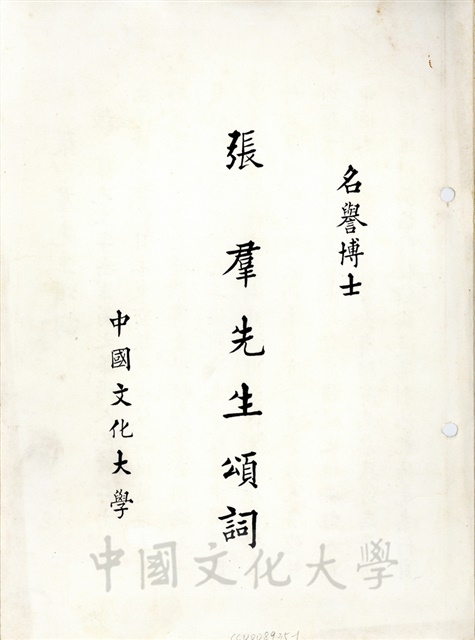 名譽博士
張 羣先生頌詞
中國文化大學
中國文化大學